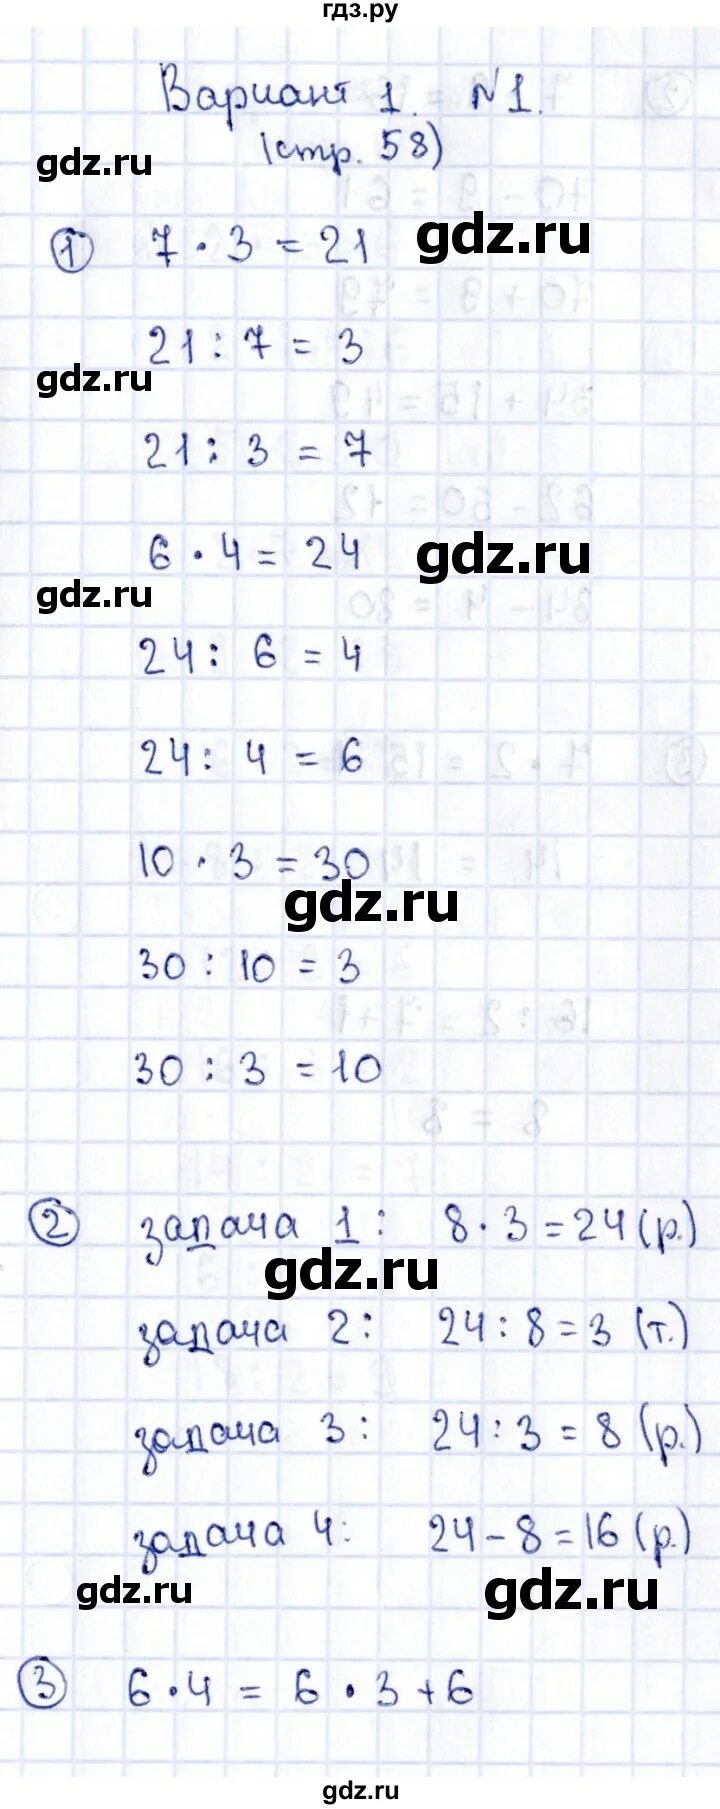 гдз.ру
Вариант 1. №1.
(стр. 58)
gdz.ru
① 7 · 3 = 21
gdz.ru
21 : 7 = 3
gdz.ru
21 : 3 = 7
6 · 4 = 24
gdz.ru
gdz.ru
24 : 6 = 4
24 : 4 = 6
10 · 3 = 30
gdz.ru
30 : 10 = 3
30 : 3 = 10
② задача 1 : 8 · 3 = 24 (р.)
gdz.ru
задача 2 : 24 : 8 = 3 (т.)
задача 3 : 24 : 3 = 8 (р.)
задача 4 : 24 - 8 = 16 (р.)
gdz.ru
gdz.ru
③ 6 · 4 = 6 · 3 + 6
gdz.ru